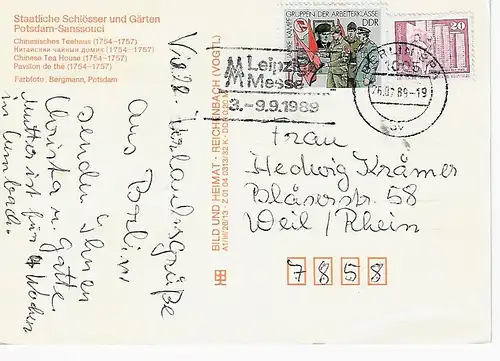 Staatliche Schlösser und Gärten
Potsdam-Sanssouci
Chinesisches Teehaus (1754—1757)
Китайский чайный домик (1754—1757)
Chinese Tea House (1754—1757)
Pavillon de thé (1754—1757)
Farbfoto: Bergmann, Potsdam
Viele Urlaubsgrüße
aus Berlin
senden Ihnen
Christa u. Gatte
Mutter ist für 4 Wochen
in
BILD UND HEIMAT · REICHENBACH (VOGTL)
A1/III/26/13 · Z 01 04 0313/82 K · DDR
GRUPPEN DER ARBEITERKLASSE
DDR
20
DDR
MM Leipziger
Messe
3.-9.9.1989
BERLIN
1085
89-19
Frau
Hedwig Krämer
Bläserstr. 58
Weil/Rhein
7858